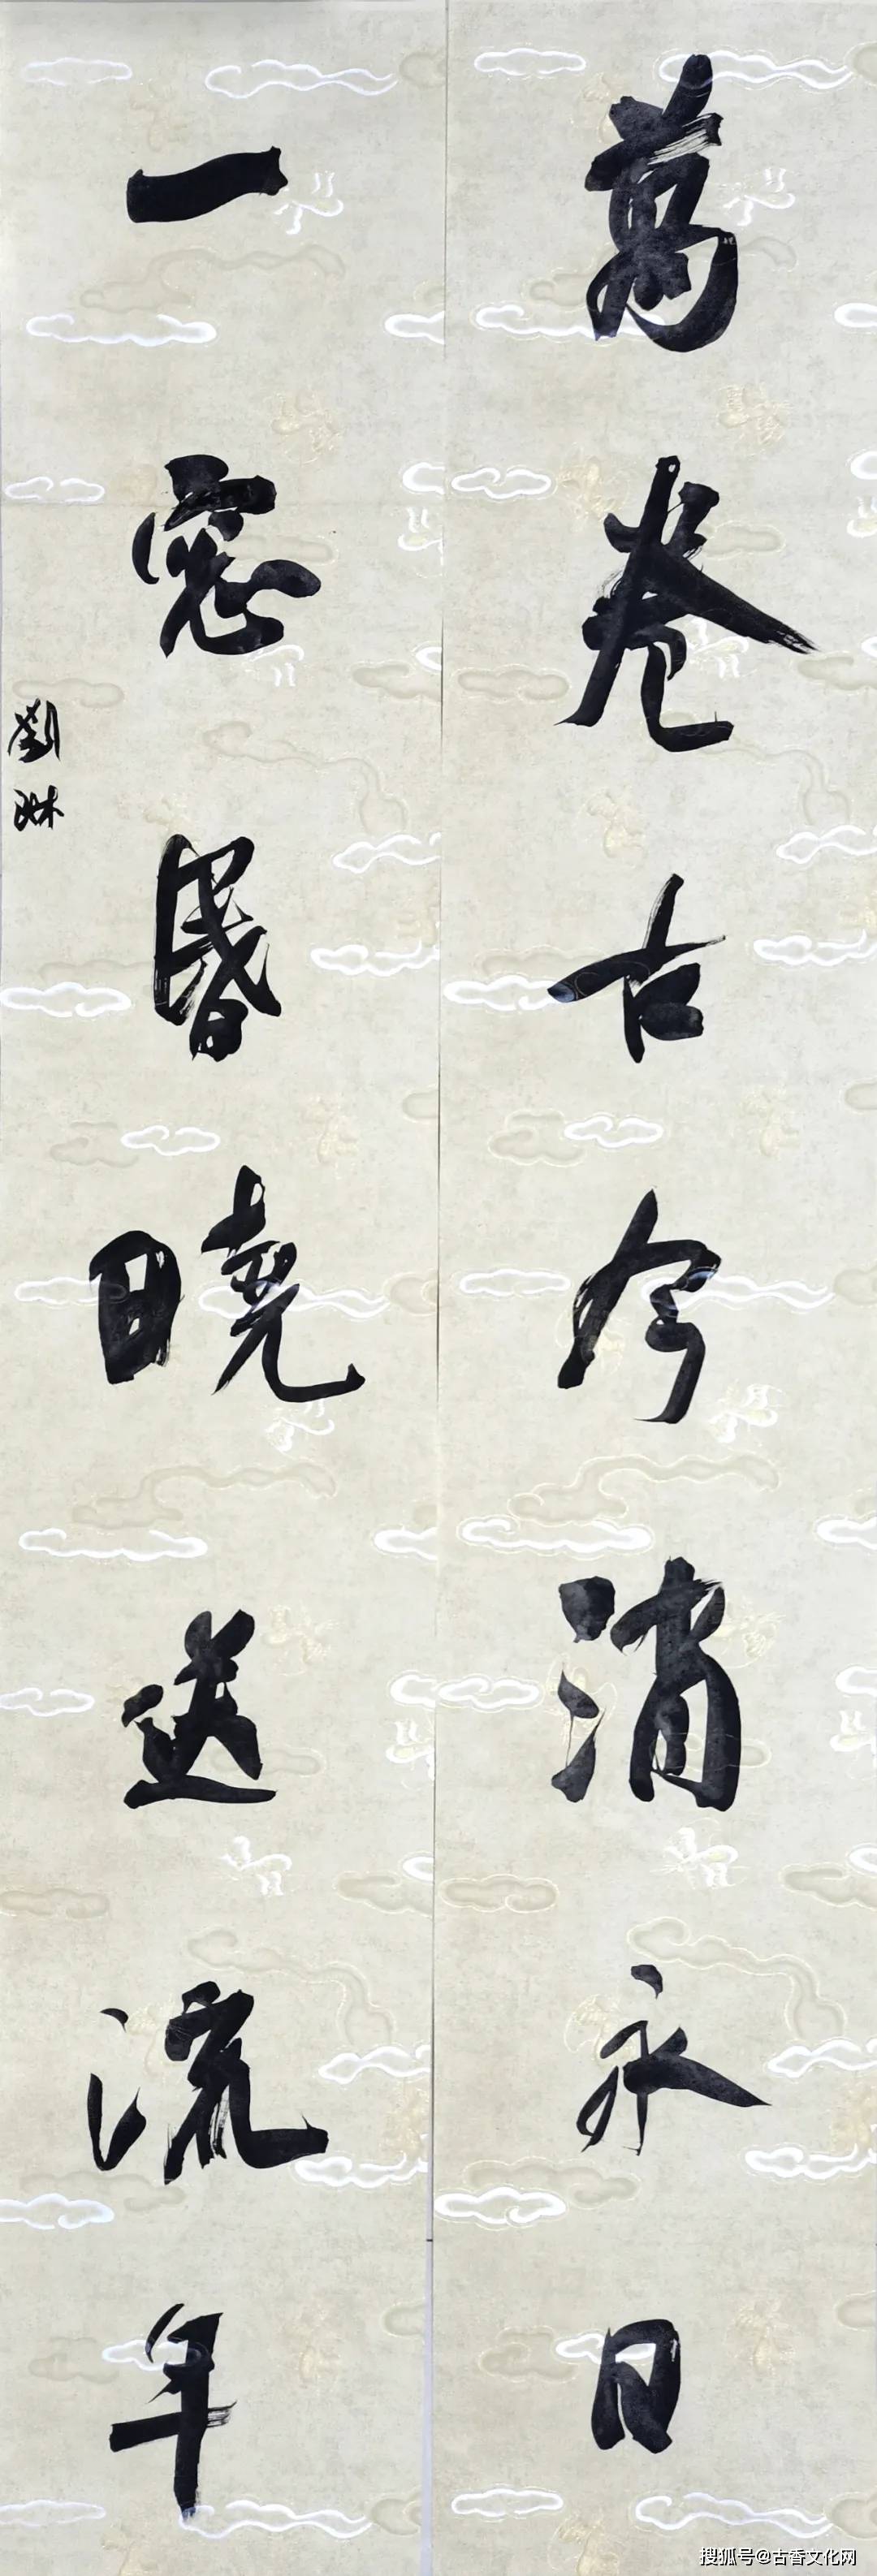 萬卷古今消永日
一窓昬曉送流年
劉琳
搜狐号@古香文化网